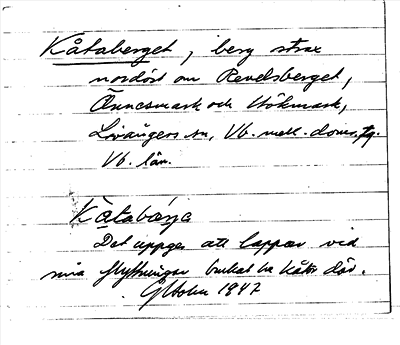 Kåtaberget, berg strax
nordöst om Revelsberget,
Önnesmark och Hökmark,
Lövångers sn, Vb. mell. doms. tg.
Vb. län.
Kåtabärja
Det uppges att lappar vid
sina flyttningar brukat ha kåtor där.
1947